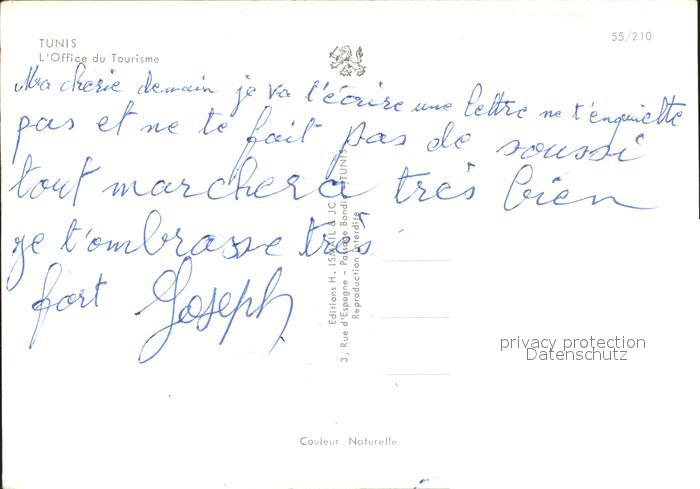 TUNIS
L'Office du Tourisme
55/210
Ma cherie demain je va t'écrire une lettre ne t'enquiette
pas et ne te fait pas de soussi
tout marchera très bien
je t'ombrasse très
fort Joseph
Editions H. ISMAIL & JC TUNIS
3, Rue d'Espagne - Passage
Reproduction interdite
privacy protection
Datenschutz
Couleur Naturelle